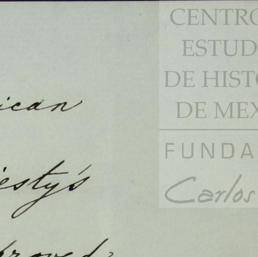 CENTRO
ESTUD
DE HISTO
DE MEX
FUNDA
Carlos
ican
esty's
proved